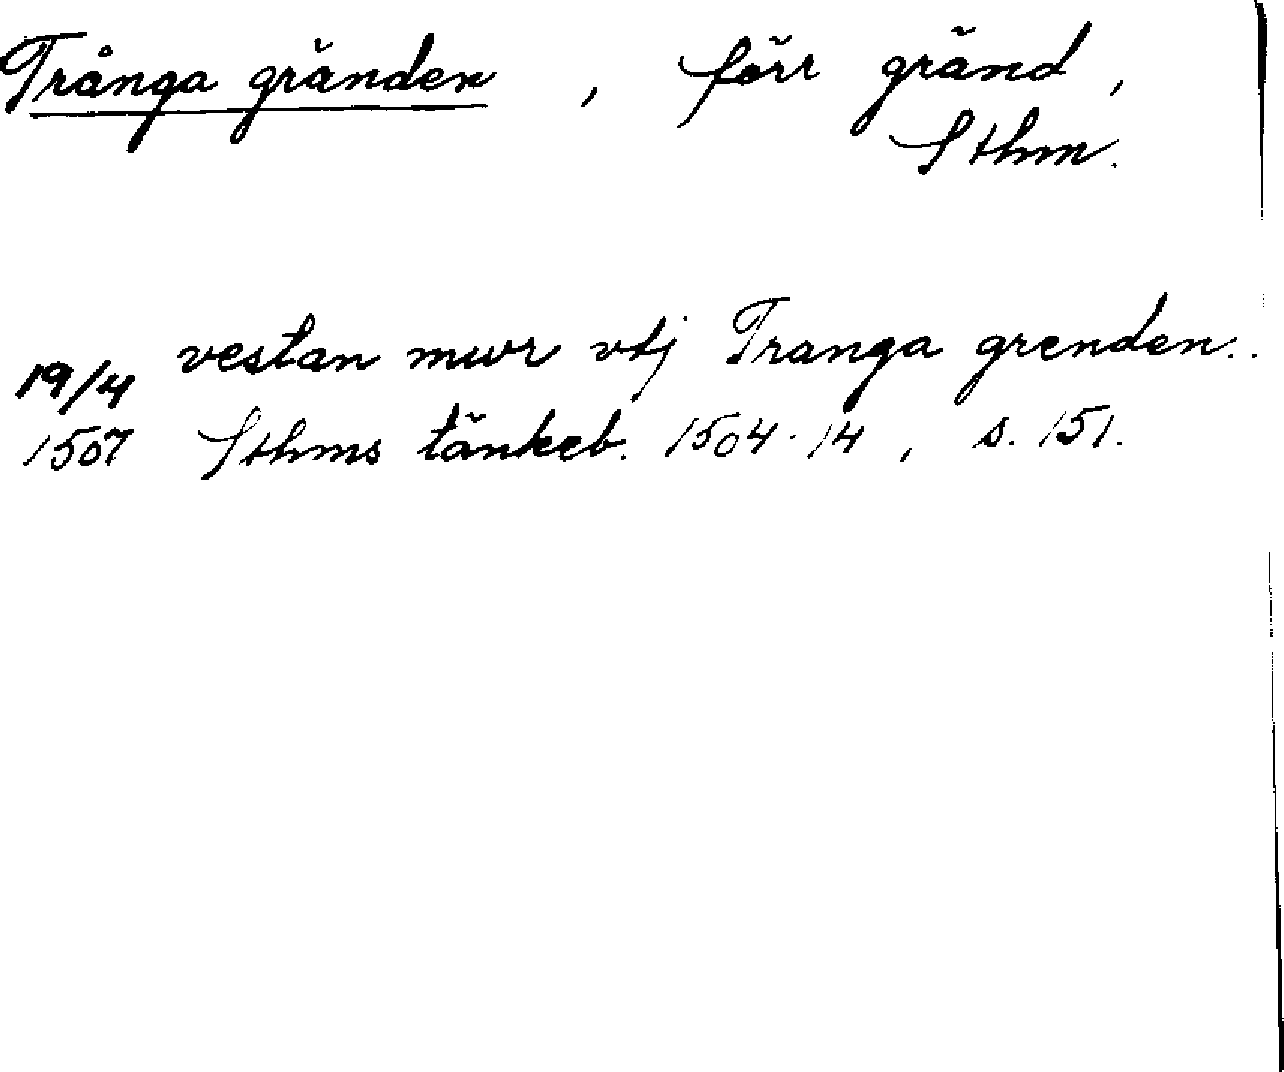 Trånga gränden , förr gränd ,
Sthm.
19/4 vestan mwr vtj Tranga grenden..
1507 Sthms tänkeb. 1504-14 , s. 151.